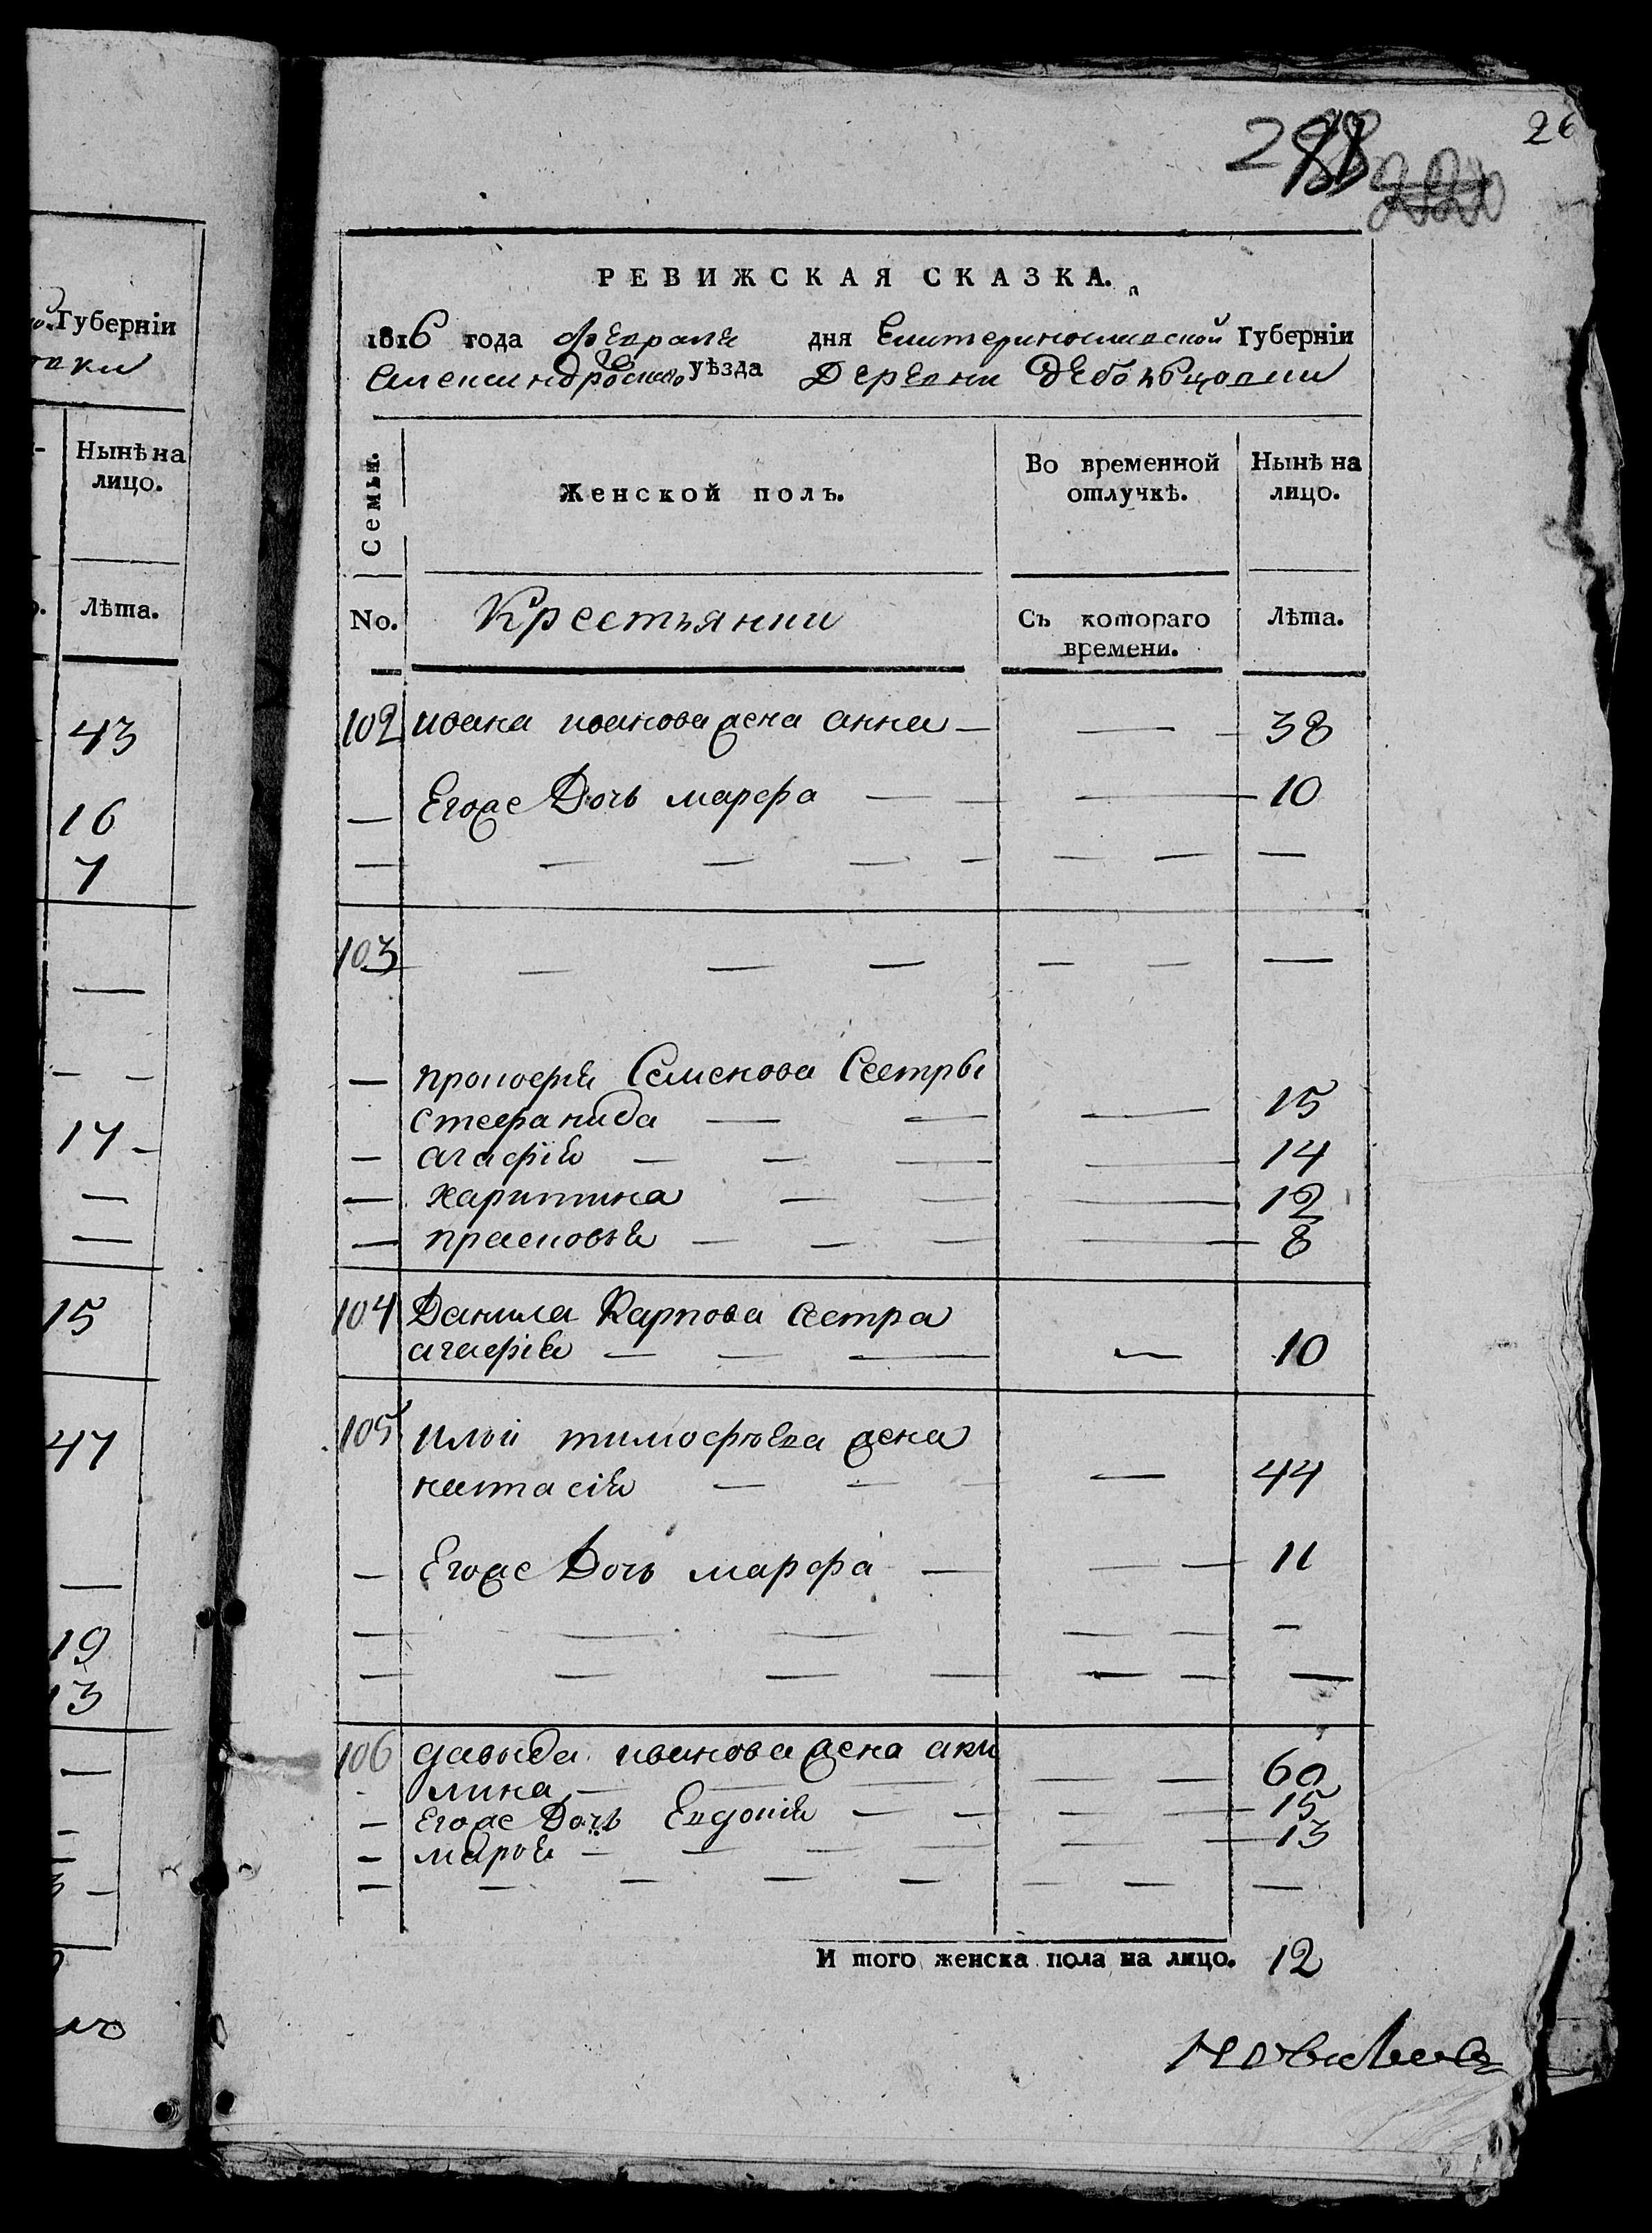 Губерніи
Нынѣ на
лицо.
Лѣта.
43
16
7
17
15
47
19
13
26
РЕВИЖСКАЯ СКАЗКА.
1816 года Февраля дня Екатеринослаской Губерніи
Александровскаго уѣзда Деревни
Семьи.
Женской полъ.
Во временной отлучкѣ.
Нынѣ на лицо.
No.
Крестьянки
Съ котораго времени.
Лѣта.
102 ивана иванова жена анна 38
Егоже Дочь марфа 10
103
прокофия Семенова Сестры
стефанида 15
агафія 14
харитина 12
прасковья 8
104 Данила Карпова сестра
агафія 10
105 Ильи тимофѣева жена
настасія 44
Егоже Дочь марфа 11
106 давыда иванова жена аку
лина 60
Егоже Дочь Евдокия 15
марья 13
И того женска пола на лицо. 12